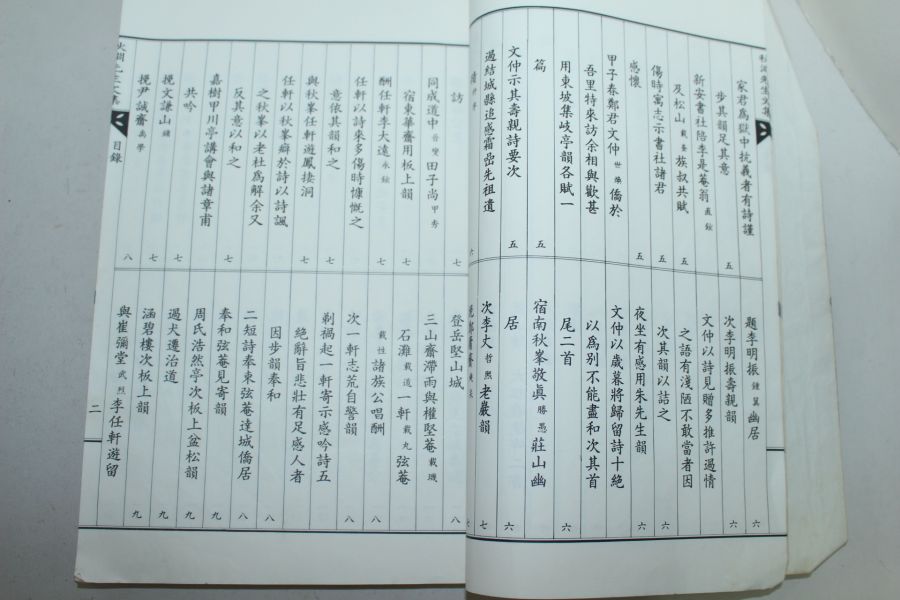 家君爲獄中抗義者有詩謹
步其韻足其意 五
新安書社陪李是菴翁 直鉉
及松山 族叔共賦 五
傷時寓志示書社諸君 五
感懷
甲子春鄭君文仲 世 僑於
吾里特來訪余相與歡甚
用東坡集岐亭韻各賦一
篇 五
文仲示其壽親詩要次 五
過結城縣追感霜嵒先祖遺
題李明振 鍾 幽居 六
次李明振壽親韻 六
文仲以詩見贈多推許過情
之語有淺陋不敢當者因
次其韻以詰之 六
夜坐有感用朱先生韻 六
文仲以歲暮將歸留詩十絶
以爲別不能盡和次其首
尾二首 六
宿南秋峯敬眞 勝愚 莊山幽
居 六
次李丈 哲熙 老巖韻 七
訪 七
同成道中 田子尚 甲秀
宿東華齋用板上韻 七
酬任軒李大遠 永鉉 七
任軒以詩來多傷時慷慨之
意依其韻和之 七
與秋峯任軒遊鳳捿洞 七
任軒以秋峯癖於詩以詩諷
之秋峯以老杜爲解余又
反其意以和之 七
嘉樹甲川亭講會與諸章甫
共吟 七
挽文謙山 鏞 七
挽尹誠齋 禹學 八
登岳堅山城 八
三山齋滯雨與權堅菴 載璣
石灘 載道 一軒 載丸 弦菴
載性 諸族公唱酬 八
次一軒志荒自警韻 八
剃禍起一軒寄示感吟詩五
絶辭旨悲壯有足感人者
因步韻奉和 八
二短詩奉東弦菴達城僑居 八
奉和弦菴見寄韻 九
周氏浩然亭次板上盆松韻 九
過犬遷治道 九
涵碧樓次板上韻 九
與崔彌堂 武烈 李任軒遊留
目錄
二